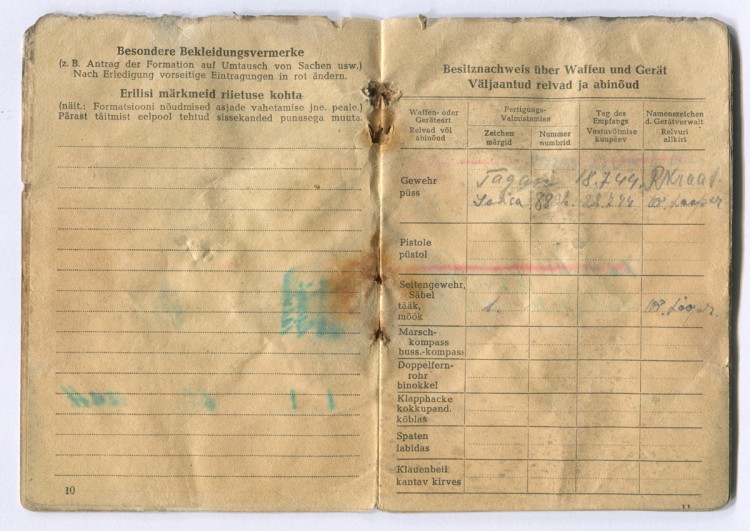 Besondere Bekleidungsvermerke
(z. B. Antrag der Formation auf Umtausch von Sachen usw.)
Nach Erledigung vorseitige Eintragungen in rot ändern.
Erilisi märkmeid riietuse kohta
(näit.: Formatsiooni nõudmised asjade vahetamise jne. peale.)
Pärast täitmist eelpool tehtud sissekanded punasega muuta.
10
Besitznachweis über Waffen und Gerät
Väljaantud relvad ja abinõud
Waffen- oder
Geräteart
Relvad või
abinõud
Fertigungs-
Valmistamise
Zeichen
märgid
Nummer
numbrid
Tag des
Empfangs
Vastuvõtmise
kuupäev
Namenszeichen
d. Gerätverwalt
Relvuri
allkiri
Gewehr
püss
18.7.44.
28.7.44
Pistole
püstol
Seitengewehr,
Säbel
tääk,
mõõk
1.
Marsch-
kompass
buss.-kompass
Doppelfern-
rohr
binokkel
Klapphacke
kokkupand.
kõblas
Spaten
labidas
Klauenbeil
kantav kirves
11